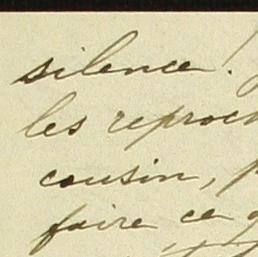 silence !
les reproc
cousin, p
faire ce q